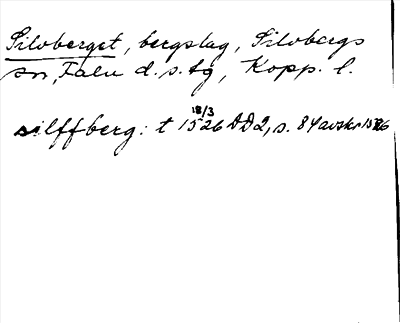 Silvberget, bergslag, Silvbergs
sn, Falu d.s. tg, Kopp. l.
silffberg: t 18/3 1526 DD2, s. 84 avskr 1526